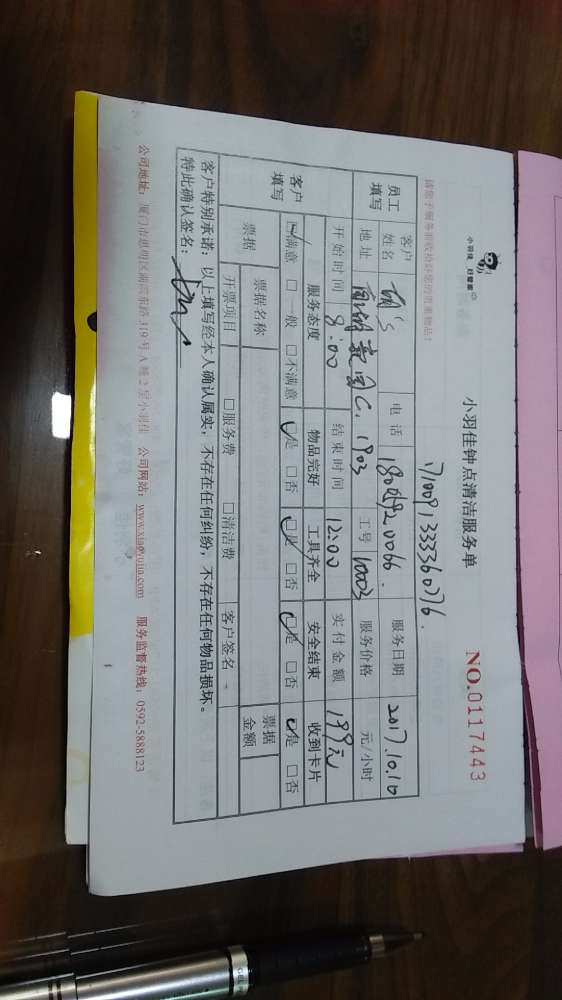 小羽佳 好管家
小羽佳钟点清洁服务单
NO.0117443
171009133336076.
请您于服务前收拾好您的贵重物品!
员工填写
客户姓名
电话
服务日期 2017.10.10
地址 C1 1903
工号 10003
服务价格 元/小时
开始时间 8:00
结束时间 12:00
实付金额 199元
客户填写
服务态度 物品完好 工具齐全 安全结束 收到卡片
☑满意 □一般 □不满意 ☑是 □否 ☑是 □否 ☑是 □否 ☑是 □否
票据 票据名称 票据金额
开票项目 □服务费 □清洁费 客户签名
客户特别承诺:以上填写经本人确认属实,不存在任何纠纷,不存在任何物品损坏。
特此确认签名:
公司地址:厦门市思明区湖滨东路319号A幢2层小羽佳 公司网站:www.xiaoyujia.com 服务监督热线:0592-5888123